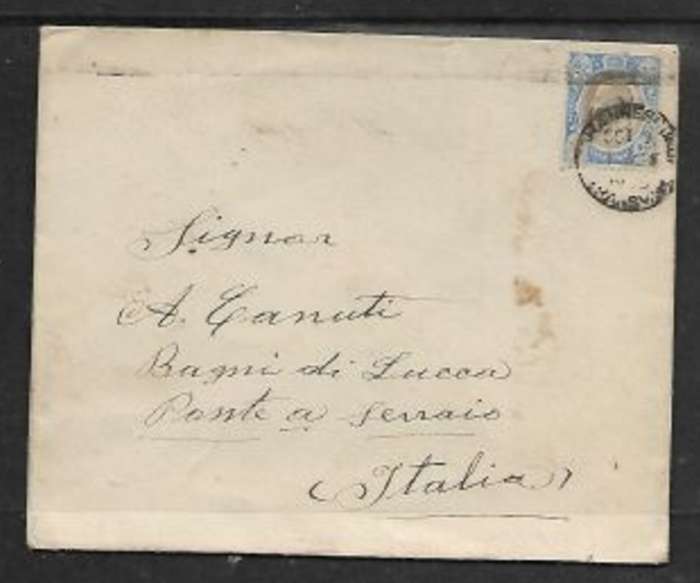 Signor
A. Canuti
Bagni di Lucca
Ponte a Serraio
(Italia)
OCT